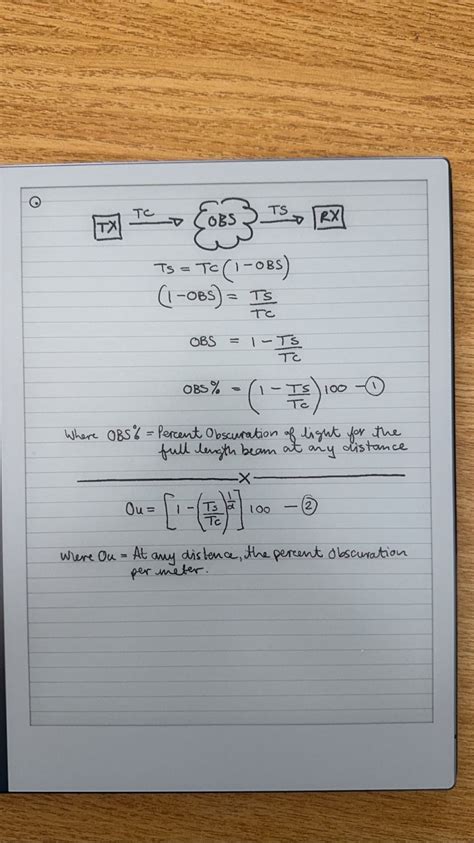 TX TC OBS TS RX
Ts = Tc(1-OBS)
(1-OBS) = Ts/Tc
OBS = 1 - Ts/Tc
OBS% = (1 - Ts/Tc)100 - ①
Where OBS% = Percent Obscuration of light for the
full length beam at any distance
x
Ou = [1-(Ts/Tc)^1/d]100 - ②
Where Ou = At any distance, the percent Obscuration
per meter.